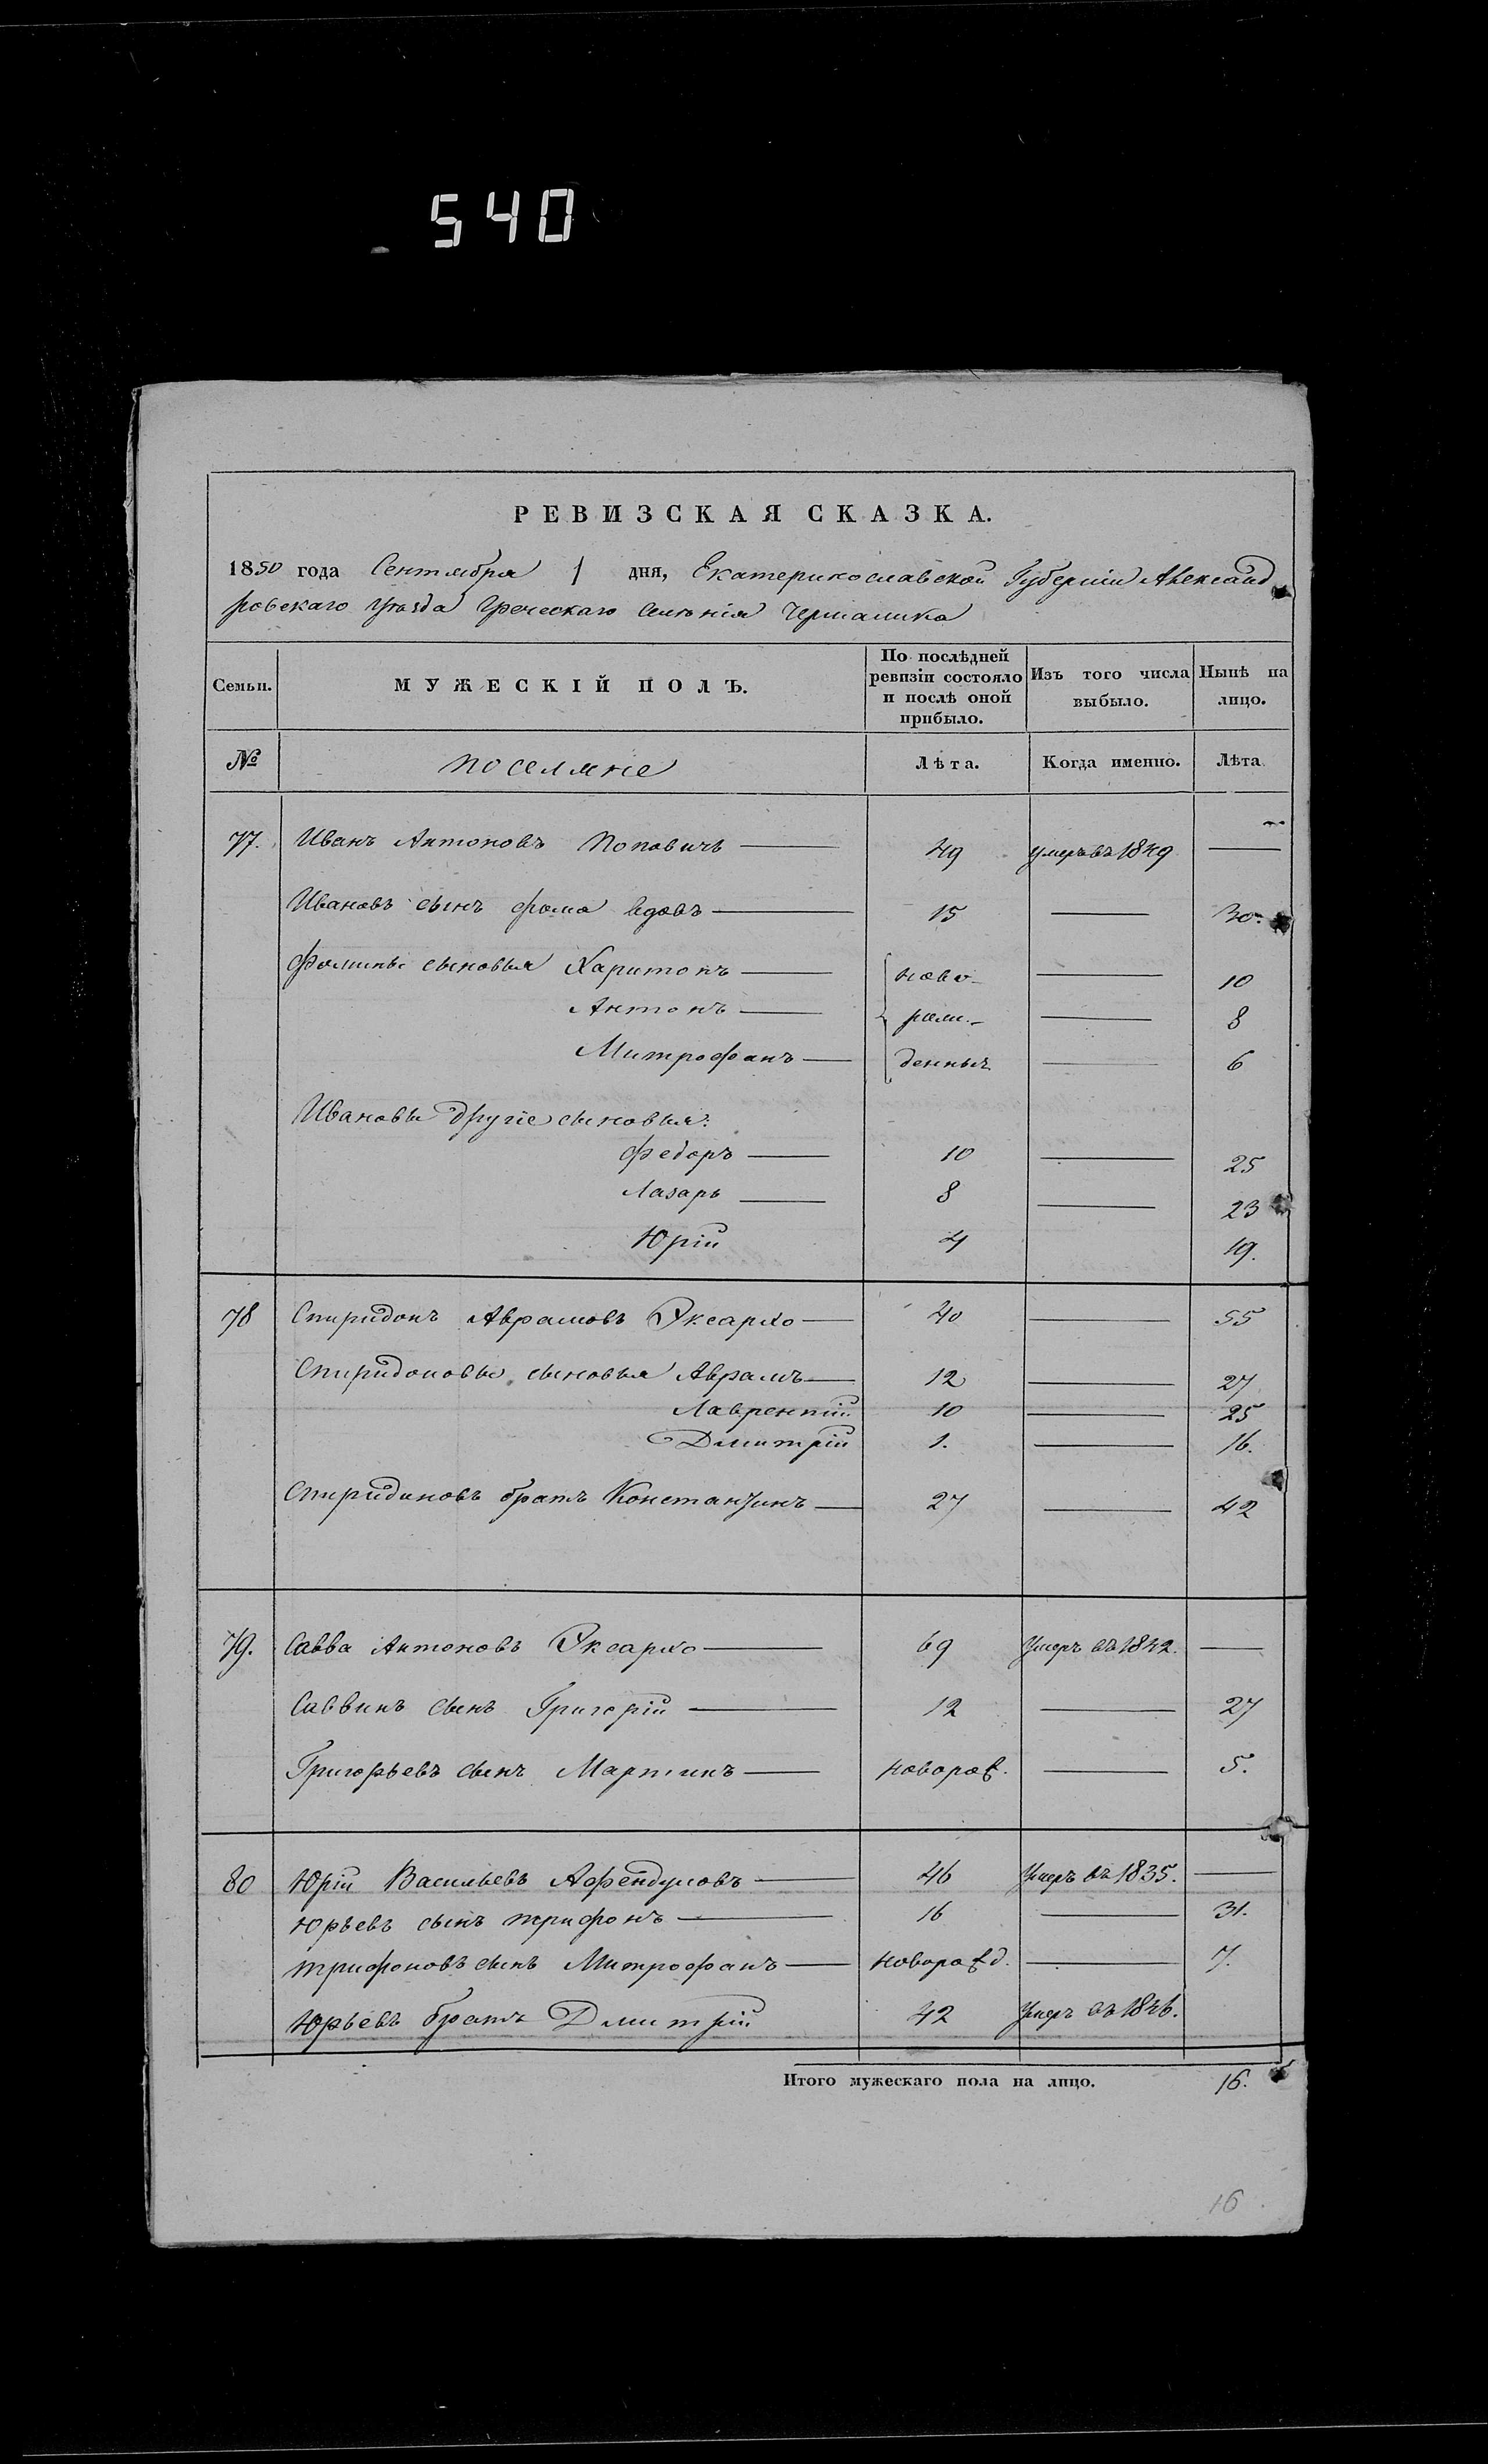 540
РЕВИЗСКАЯ СКАЗКА.
1850 года Сентября 1 дня, Екатеринославской Губерніи Александ
ровскаго Уѣзда Греческаго селенія Чермалика
Семьи. МУЖЕСКІЙ ПОЛЪ. По послѣдней ревизіи состояло и послѣ оной прибыло. Изъ того числа выбыло. Нынѣ на лицо.
№ Поселяне Лѣта. Когда именно. Лѣта
77. Иванъ Антоновъ Поповичъ — 49 умеръ въ 1849 —
Ивановъ сынъ Фома вдовъ — 15 — 30.
Фомины сыновья Харитонъ — ново- — 10
Антонъ — рож- — 8
Митрофанъ — денныхъ — 6
Ивановы другіе сыновья:
Федоръ — 10 — 25
Лазарь — 8 — 23
Юрій 4 19.
78 Спиридонъ Аврамовъ Эксархо — 40 — 55
Спиридоновы сыновья Аврамъ — 12 — 27
Лаврентій 10 — 25
Дмитрій 1. — 16.
Спиридоновъ братъ Константинъ — 27 — 42
79. Савва Антоновъ Эксархо — 69 Умеръ въ 1842. —
Саввинъ сынъ Григорій — 12 — 27
Григорьевъ сынъ Мартинъ — новорож. — 5.
80 Юрій Васильевъ Афендуловъ — 46 Умеръ въ 1835. —
Юрьевъ сынъ Трифонъ — 16 — 31.
Трифоновъ сынъ Митрофанъ — новорожд. — 7.
Юрьевъ братъ Дмитрій 42 Умеръ въ 1846.
Итого мужескаго пола на лицо. 16.
16